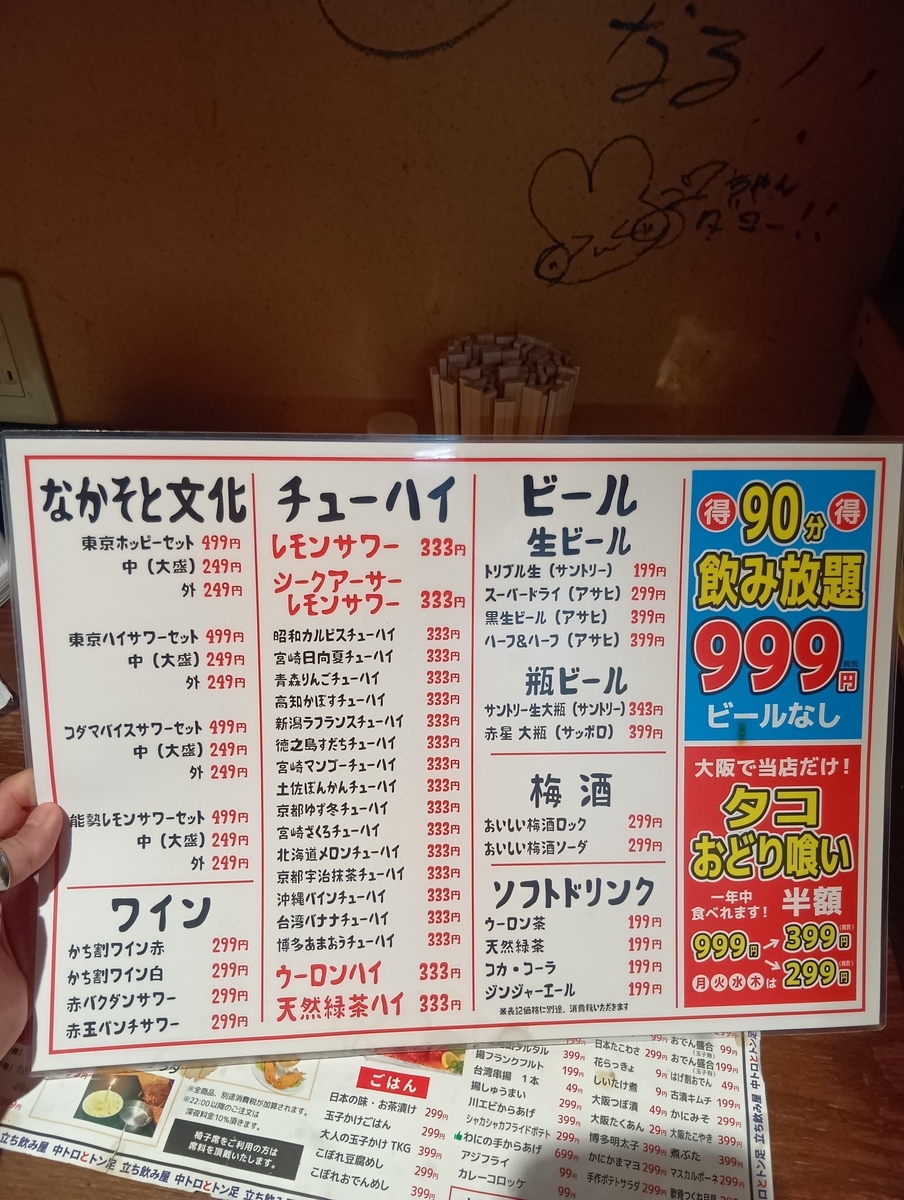 なる
ちゃん
ダヨー!!
なかそと文化
東京ホッピーセット 499円
中（大盛）249円
外 249円
東京ハイサワーセット 499円
中（大盛）249円
外 249円
コダマバイスサワーセット 499円
中（大盛）249円
外 249円
能勢レモンサワーセット 499円
中（大盛）249円
外 249円
ワイン
かち割ワイン赤 299円
かち割ワイン白 299円
赤バクダンサワー 299円
赤玉パンチサワー 299円
チューハイ
レモンサワー 333円
シークアーサー
レモンサワー 333円
昭和カルピスチューハイ 333円
宮崎日向夏チューハイ 333円
青森りんごチューハイ 333円
高知かぼすチューハイ 333円
新潟ラフランスチューハイ 333円
徳之島すだちチューハイ 333円
宮崎マンゴーチューハイ 333円
土佐ぽんかんチューハイ 333円
京都ゆず冬チューハイ 333円
宮崎ざくろチューハイ 333円
北海道メロンチューハイ 333円
京都宇治抹茶チューハイ 333円
沖縄パインチューハイ 333円
台湾バナナチューハイ 333円
博多あまおうチューハイ 333円
ウーロンハイ 333円
天然緑茶ハイ 333円
ビール
生ビール
トリプル生（サントリー） 199円
スーパードライ（アサヒ） 299円
黒生ビール（アサヒ） 399円
ハーフ&ハーフ（アサヒ） 399円
瓶ビール
サントリー生大瓶（サントリー）343円
赤星 大瓶（サッポロ） 399円
梅酒
おいしい梅酒ロック 299円
おいしい梅酒ソーダ 299円
ソフトドリンク
ウーロン茶 199円
天然緑茶 199円
コカ・コーラ 199円
ジンジャーエール 199円
※表記価格に別途、消費税いただきます
得 90分 得
飲み放題
999円 税別
ビールなし
大阪で当店だけ！
タコ
おどり喰い
一年中
食べれます！ 半額
999円→399円(税別)
月火水木は→299円(税別)
※全商品、別途消費税が加算されます。
※22:00以降のご注文は
深夜料金10％頂きます。
椅子席をご利用の方は
席料を頂戴いたします。
ごはん
日本の味・お茶漬け 299円
玉子かけごはん 299円
大人の玉子かけ TKG 399円
こぼれ豆腐めし 299円
こぼれおでんめし 399円
揚フランクフルト 399円
台湾串揚 1本 99円
揚しゅうまい 49円
川エビからあげ 299円
シャカシャカフライドポテト 299円
わにの手からあげ 699円
アジフライ 99円
カレーコロッケ 99円
日本たこわさ 299円
花らっきょ 99円
しいたけ煮 99円
大阪つぼ漬 49円
大阪たくあん 29円
博多明太子 399円
かにかまマヨ 299円
手作ポテトサラダ 299円
おでん盛合 99円
（玉子無）
おでん盛合 199円
（玉子有）
はげ割おでん 49円
古漬キムチ 199円
かにみそ 299円
大阪たこやき 399円
煮ぶた 399円
マスカルポーネ 399円
立ち飲み屋 中トロとトン足 立ち飲み屋 中トロとトン足 立ち飲み屋
立ち飲み屋 中トロとトン足